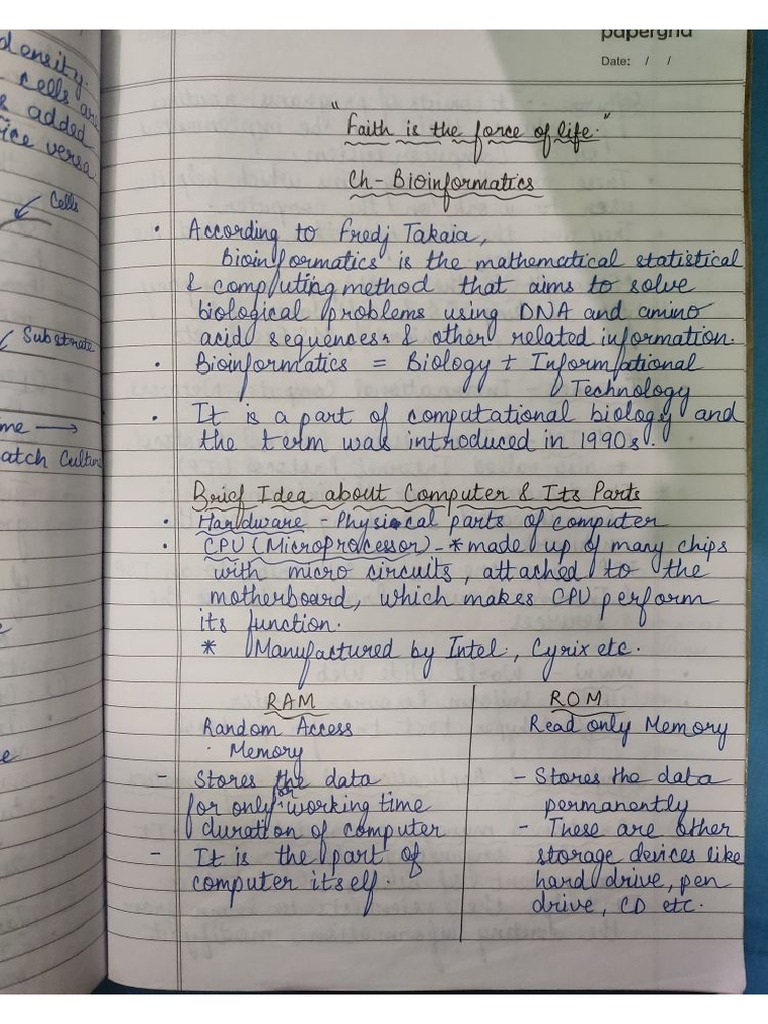 density.
cells are
added
vice versa
Cells
Substrate
me →
atch Culture
papergrid
Date: / /
"Faith is the force of life."
Ch- Bioinformatics
• According to Fredj Takaia,
Bioinformatics is the mathematical statistical
& computing method that aims to solve
biological problems using DNA and amino
acid sequences & other related information.
• Bioinformatics = Biology + Informational
Technology
• It is a part of computational biology and
the term was introduced in 1990s.
Brief Idea about Computer & Its Parts
• Hardware - Physical parts of computer
• CPU (Microprocessor) - * made up of many chips
with micro circuits, attached to the
motherboard, which makes CPU perform
its function.
* Manufactured by Intel, Cyrix etc.
RAM
Random Access
Memory
- Stores the data
for only working time
duration of computer
- It is the part of
computer itself.
ROM
Read only Memory
- Stores the data
permanently
- These are other
storage devices like
hard drive, pen
drive, CD etc.